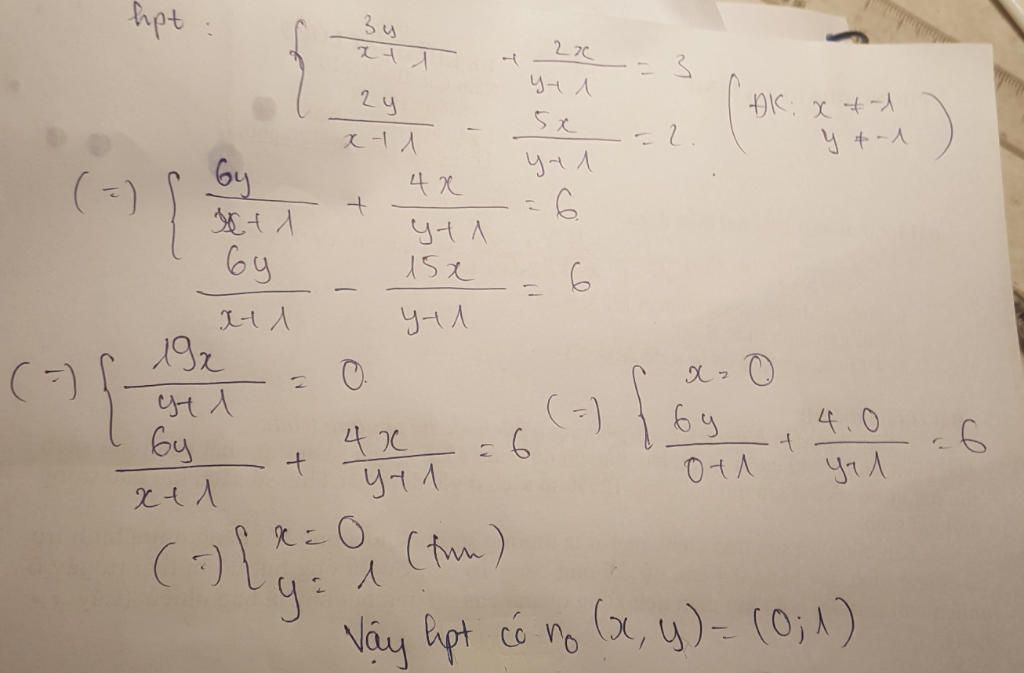 hpt : { 3y/(x+1) + 2x/(y+1) = 3
2y/(x+1) - 5x/(y+1) = 2. (ĐK: x ≠ -1 y ≠ -1)
(=) { 6y/(x+1) + 4x/(y+1) = 6
6y/(x+1) - 15x/(y+1) = 6
(=) { 19x/(y+1) = 0 (=) { x = 0
6y/(x+1) + 4x/(y+1) = 6 6y/(0+1) + 4.0/(y+1) = 6
(=) { x = 0 (tm)
y = 1
Vậy hpt có no (x, y) = (0; 1)